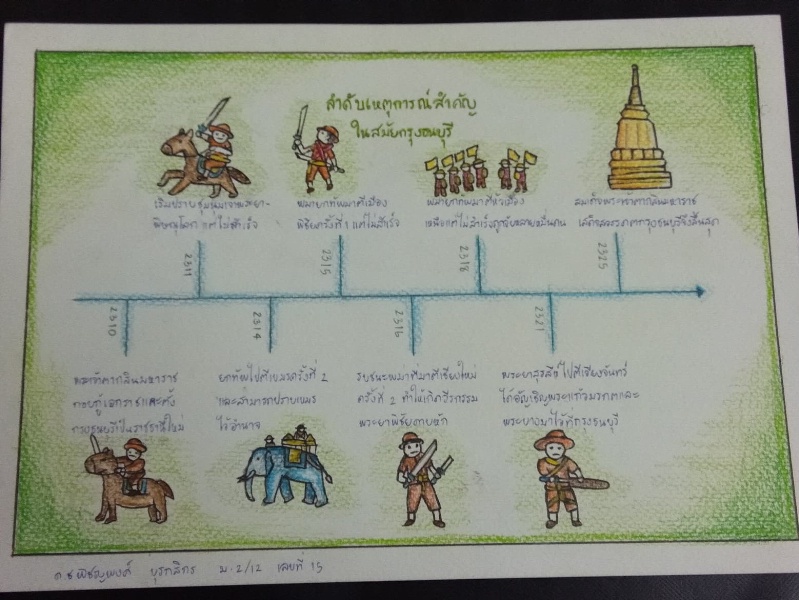 ลำดับเหตุการณ์สำคัญ
ในสมัยกรุงธนบุรี
เริ่มปราบชุมนุมเจ้าพระยา-
พิษณุโลก แต่ไม่สำเร็จ
พม่ายกทัพมาตีเมือง
พิชัยครั้งที่ 1 แต่ไม่สำเร็จ
พม่ายกทัพมาตีหัวเมือง
เหนือแต่ไม่สำเร็จ
สมเด็จพระเจ้าตากสินมหาราช
เสด็จสวรรคตกรุงธนบุรีจึงสิ้นสุด
2311
2315
2318
2325
2310
2314
2316
2321
พระเจ้าตากสินมหาราช
กอบกู้เอกราชและตั้ง
กรุงธนบุรีเป็นราชธานีใหม่
ยกทัพไปตีเขมรครั้งที่ 2
และสามารถปราบเขมร
ไว้อำนาจ
รบชนะพม่าที่มาตีเชียงใหม่
ครั้งที่ 2 ทำให้เกิดวีรกรรม
พระยาพิชัยดาบหัก
พระยาสุรสีห์ไปตีเวียงจันทร์
ได้อัญเชิญพระแก้วมรกตและ
พระบางมาไว้ที่กรุงธนบุรี
ด.ช พิชญพงศ์ ม.2/12 เลขที่ 15